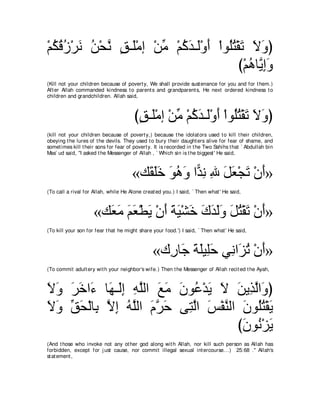 (وَلاَ تَقْتُلُواْ أَوْلَـدَكُمْ مِّنْ إمْلَـقٍ نَّحْنُ نَرْزُقُكُمْ
وَإِيَّاهُمْ)
(Kill not your children because of poverty. We shall provide sustenance for you and for them.)
After Allah commanded kindness to parents and grandparents, He next ordered kindness to
children and grandchildren. Allah said,
(وَلاَ تَقْتُلُواْ أَوْلَـدَكُمْ مِّنْ إمْلَـقٍ)
(kill not your children because of poverty,) because the idolators used to kill their children,
obeying the lures of the devils. They used to bury their daughters alive for fear of shame, and
sometimes kill their sons for fear of poverty. It is recorded in the Two Sahihs that `Abdullah bin
Mas`ud said, "I asked the Messenger of Allah , `Which sin is the biggest' He said,
«أَنْ تَجْعَلَ للهِ نِدًّا وَهُوَ خَلَقَكَ»
(To call a rival for Allah, while He Alone created you.) I said, `Then what' He said,
«أَنْ تَقْتُلَ وَلَدَكَ خَشْيَةَ أَنْ يَطْعَمَ مَعَكَ»
(To kill your son for fear that he might share your food.') I said, `Then what' He said,
«أَنْ تُزَانِي حَلِيلَةَ جَارِك»
(To commit adultery with your neighbor's wife.) Then the Messenger of Allah recited the Ayah,
(وَالَّذِينَ لاَ يَدْعُونَ مَعَ اللَّهِ إِلَـهَا ءَاخَرَ وَلاَ
يَقْتُلُونَ النَّفْسَ الَّتِى حَرَّمَ اللَّهُ إِلاَّ بِالْحَقِّ وَلاَ
يَزْنُونَ)
(And those who invoke not any other god along with Allah, nor kill such person as Allah has
forbidden, except for just cause, nor commit illegal sexual intercourse...) 25:68 ." Allah's
statement,